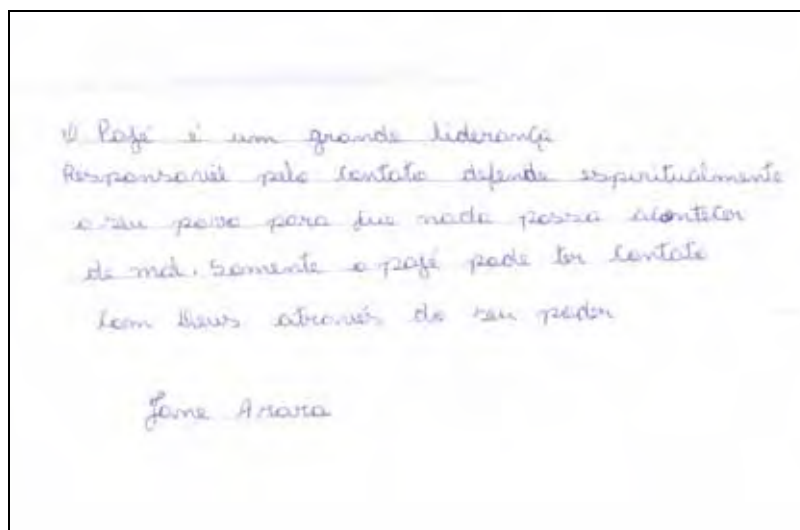 O Pajé é um grande liderança
Responsavél pelo Contato defende espiritualmente
o seu povo para que nada possa acontecer
de mal. Somente o pajé pode ter Contato
Com Deus através do seu poder
Jane Arara